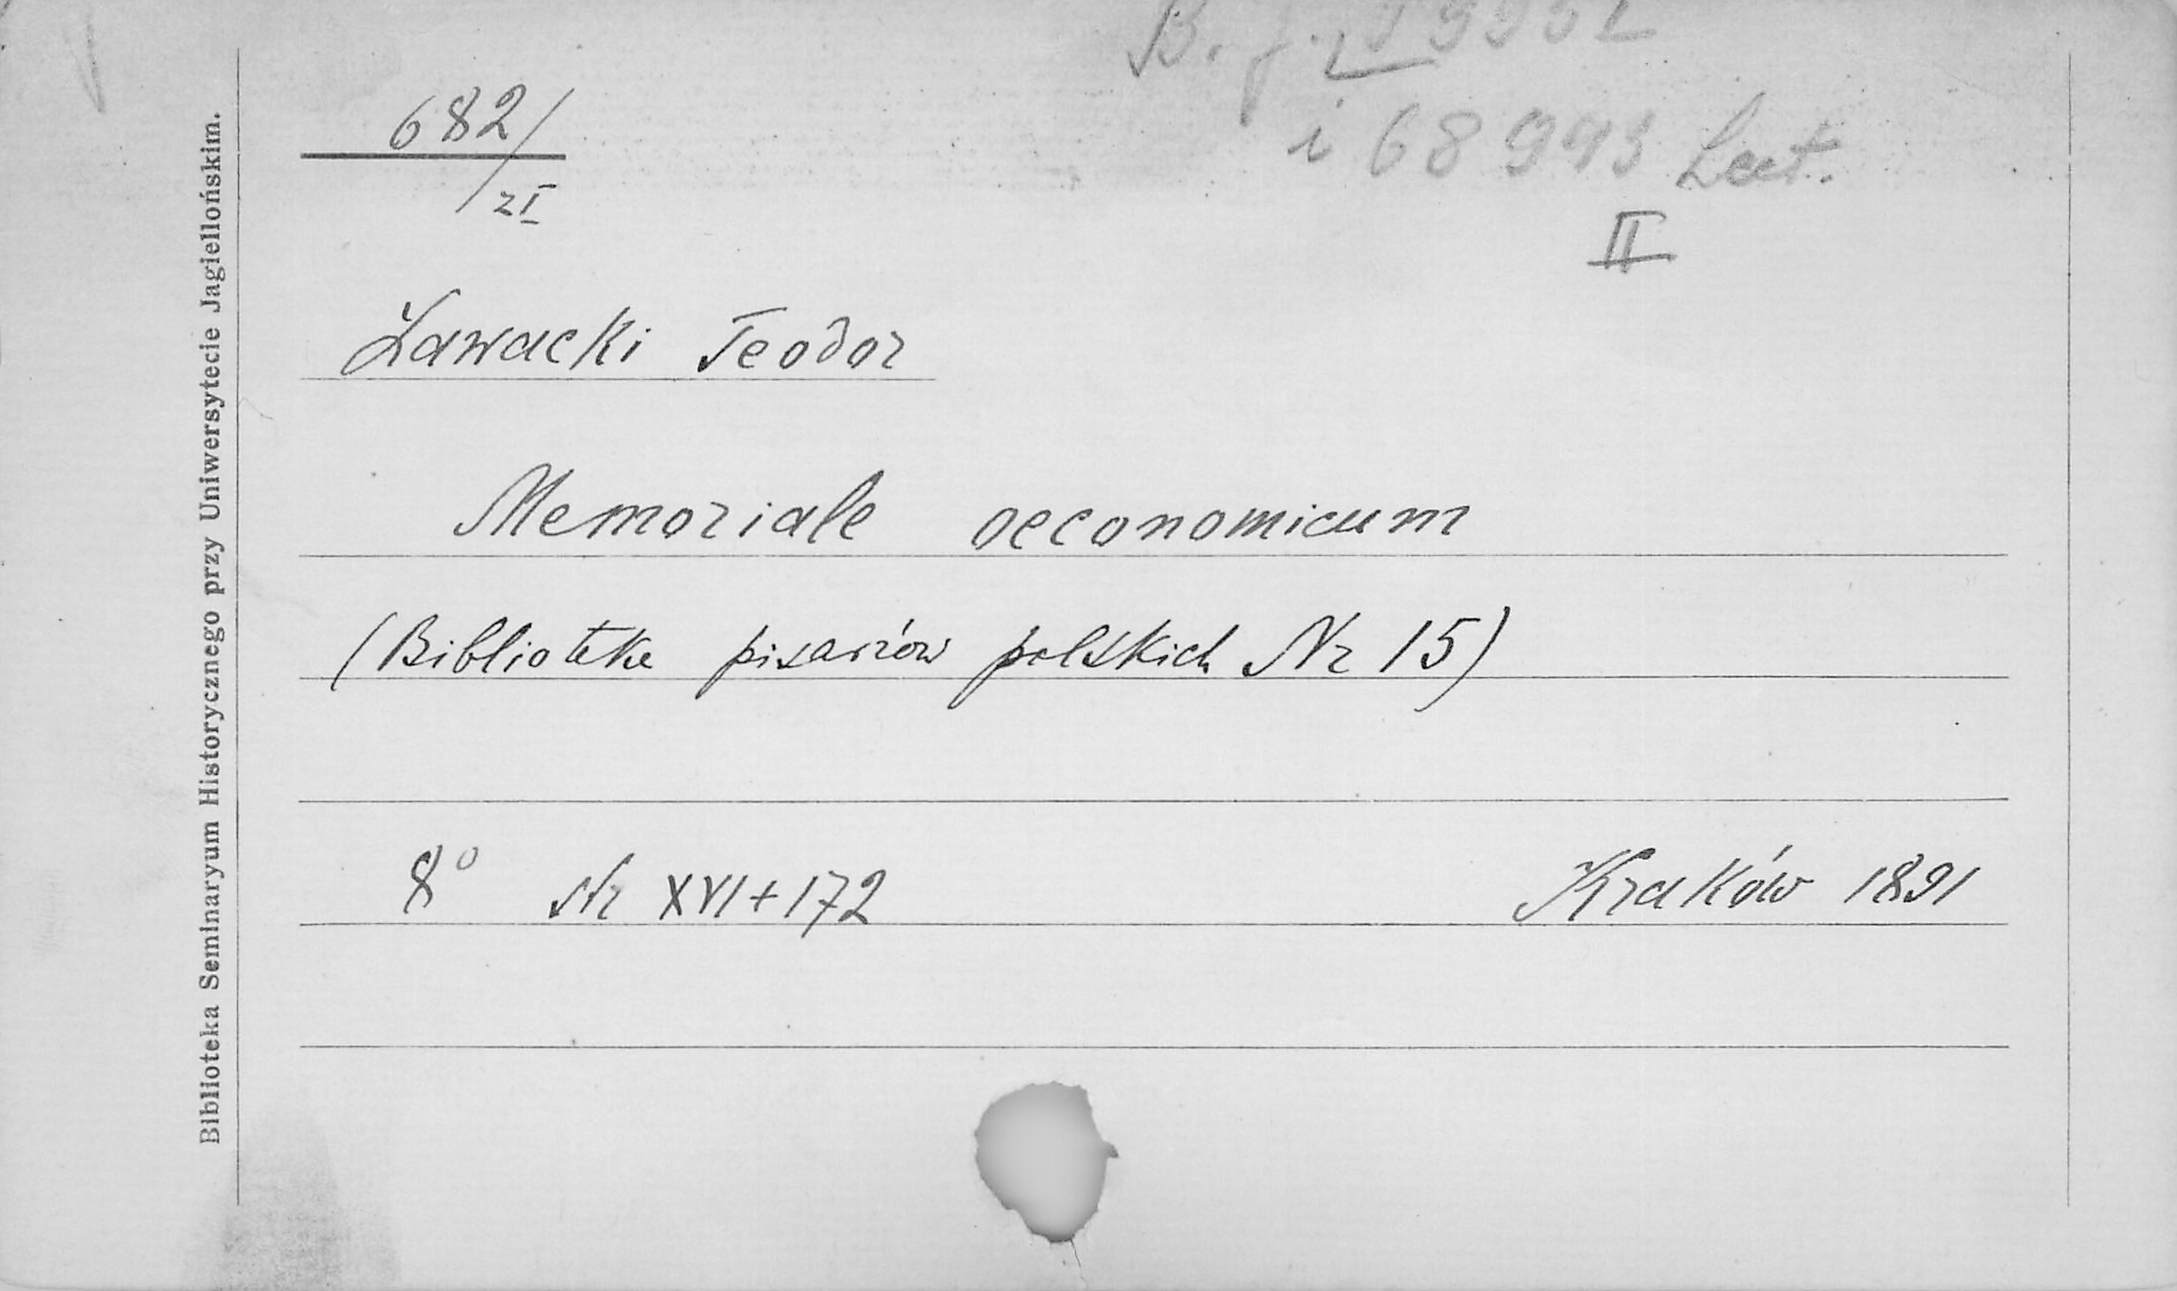 B. j.
i 68993 Lect.
II
682/
zI
Zawacki Teodor
Memoriale oeconomicum
(Biblioteka pisarzów polskich Nr 15)
8° str XVI+172 Kraków 1891
Biblioteka Seminaryum Historycznego przy Uniwersytecie Jagiellońskim.